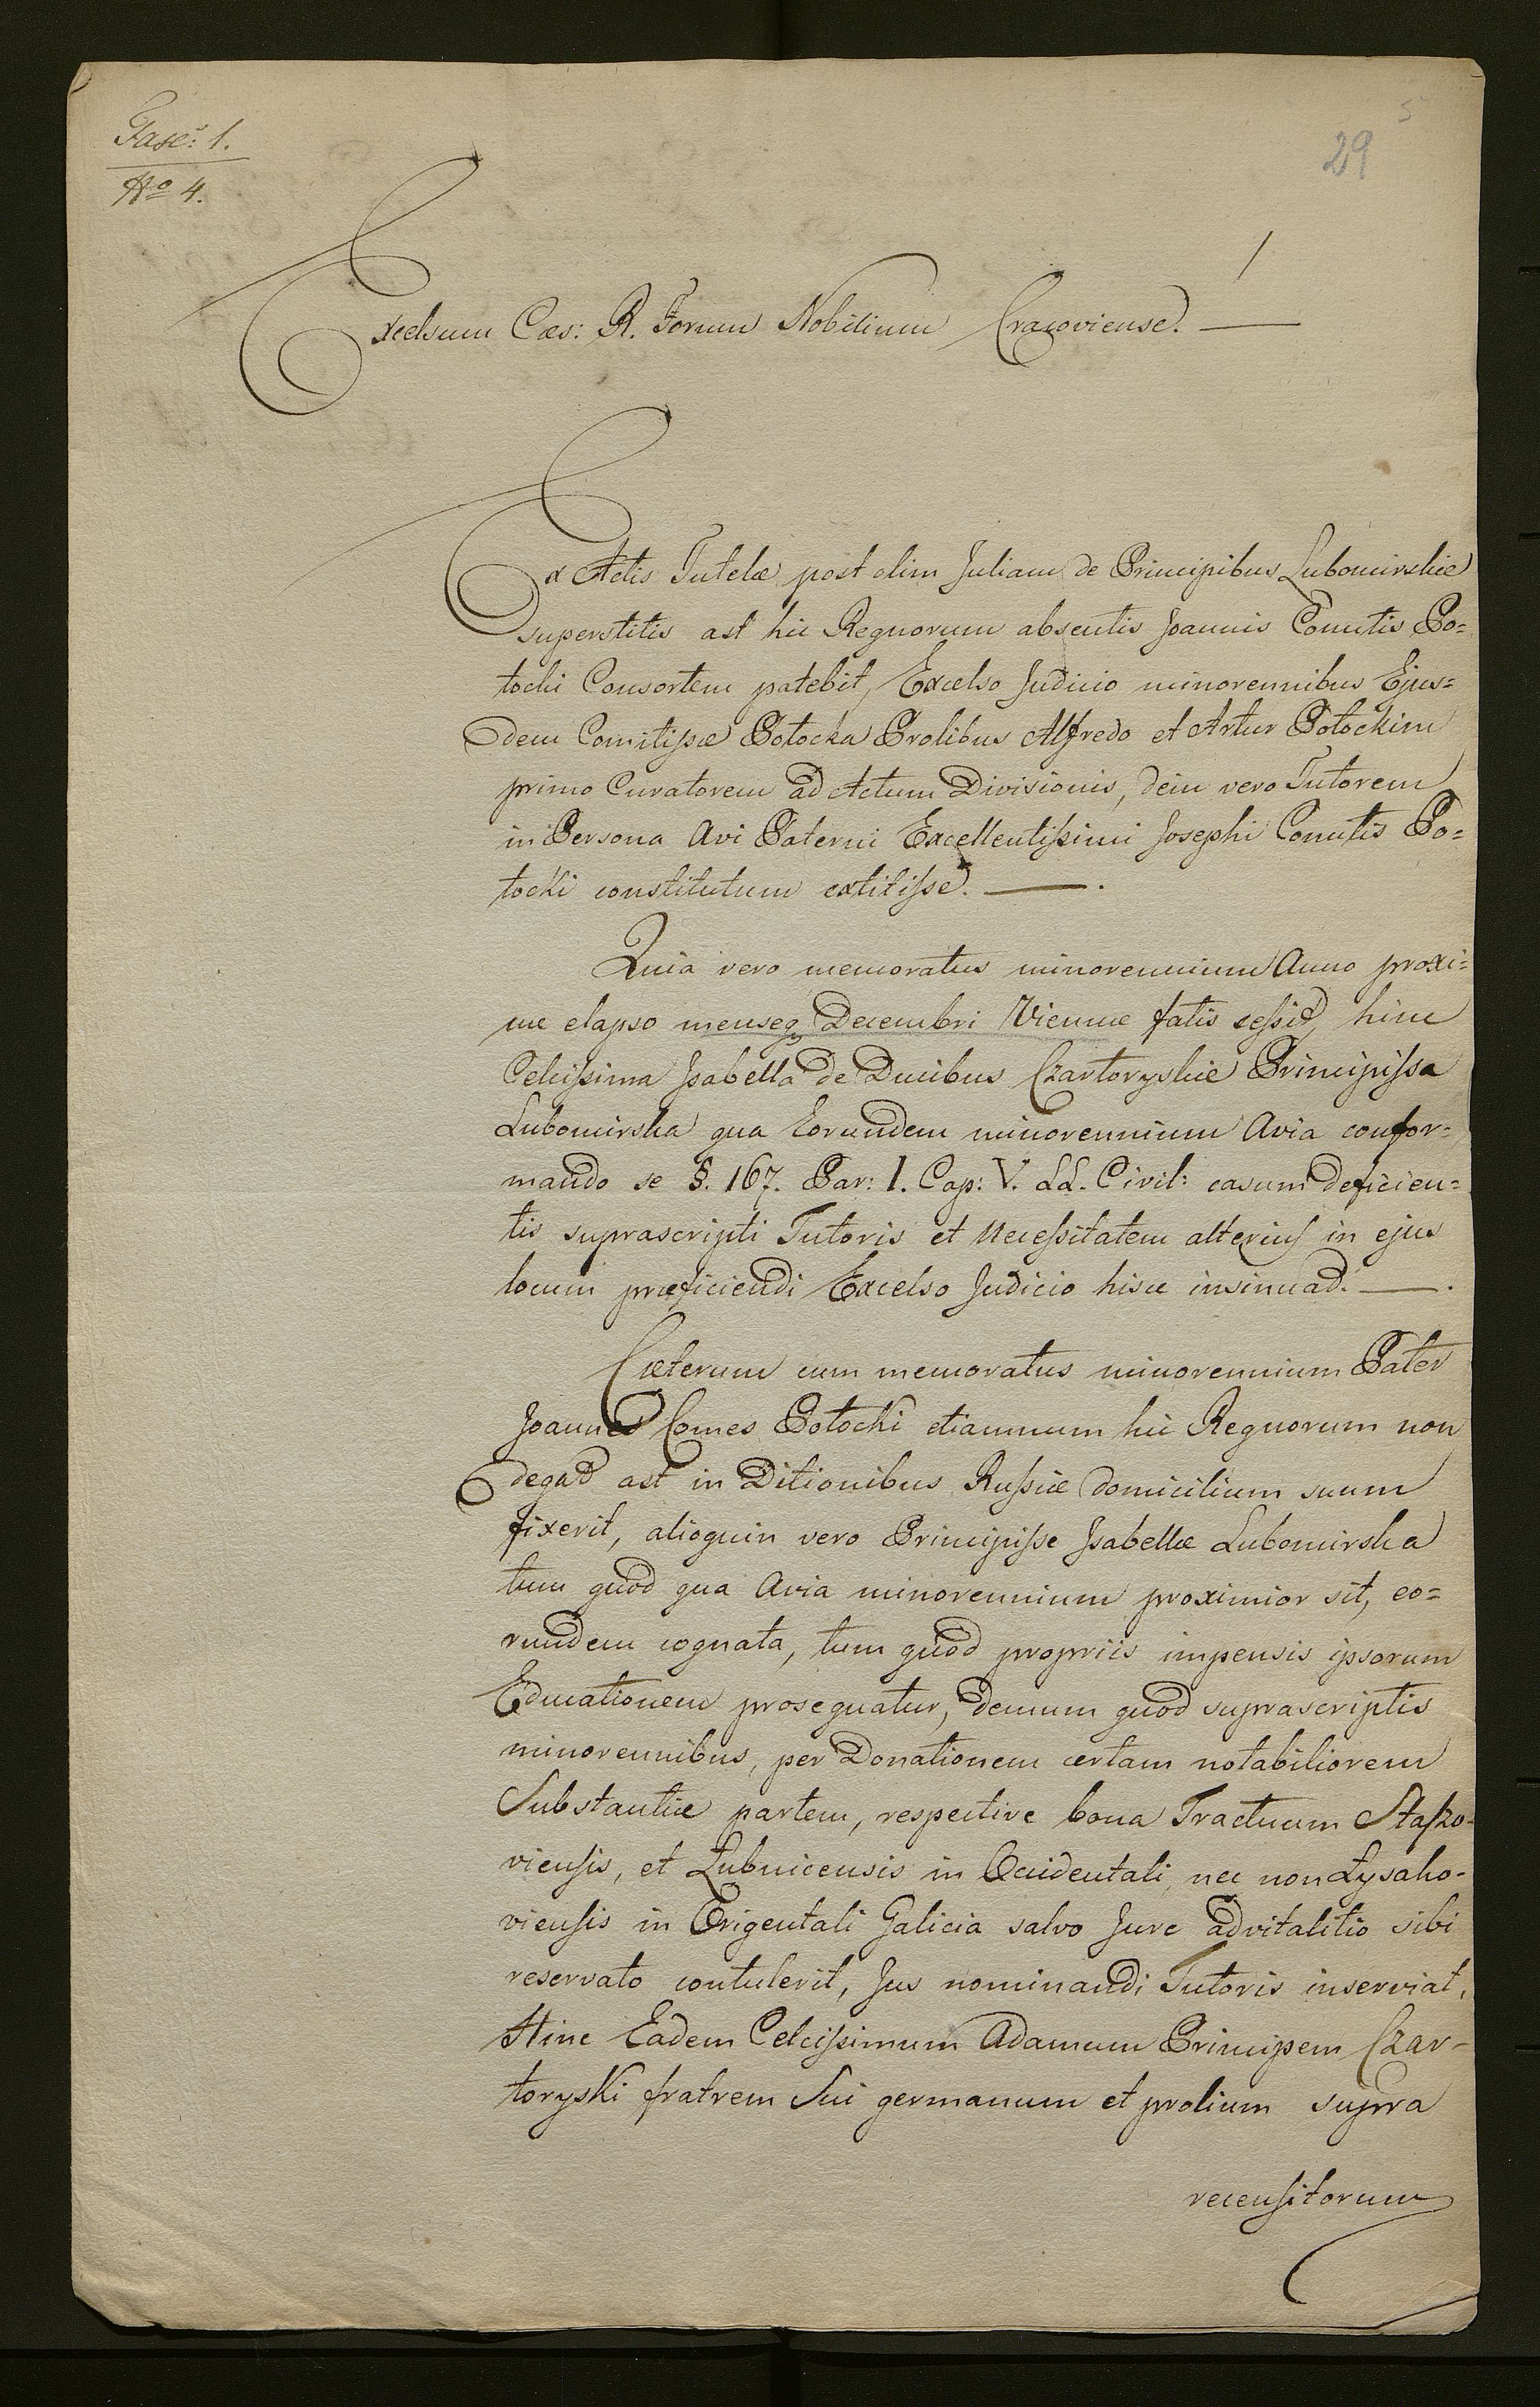 Fasc: 1.
No 4.
29
5
Excelsum Cæs: R. Forum Nobilium Cracoviense. —
Ex Actis Tutelæ post olim Juliam de Principibus Lubomirskie
superstitis ast hic Regnorum absentis Joannis Comitis Po=
tocki Consortem patebit, Excelso Judicio minorennibus Ejus=
dem Comitissæ Potocka Prolibus Alfredo et Artur Potockim
primo Curatorem ad Actum Divisionis, dein vero Tutorem
in Persona Avi Paterni Excellentissimi Josephi Comitis Po=
tocki constitutum extitisse. —.
Quia vero memoratus minorennium Anno proxi=
me elapso menseq Decembri Viennæ fatis cessit, hinc
Celcissima Isabella de Ducibus Czartoryskie Principissa
Lubomirska qua Eorundem minorennium Avia confor=
mando se §. 167. Par: I. Cap: V. LL. Civil: casum deficien=
tis suprascripti Tutoris et Necessitatem alterius in ejus
locum præficiendi Excelso Judicio hisce insinuat. —.
Cæterum cum memoratus minorennium Pater
Joannes Comes Potocki etiamnum hic Regnorum non
degat ast in Ditionibus Russiæ domicilium suum
fixerit, alioquin vero Principisse Isabellæ Lubomirska
tum quod qua Avia minorennium proximior sit, eo=
rundem cognata, tum quod propriis impensis ipsorum
Educationem prosequatur, demum quod suprascriptis
minorennibus, per Donationem certam notabiliorem
Substantiæ partem, respective bona Tractuum Staszo-
viensis, et Lubnicensis in Occidentali, nec non Lysako-
viensis in Origentali Galicia salvo Jure advitalitio sibi
reservato contulerit, Jus nominandi Tutoris inserviat,
Hinc Eadem Celcissimum Adamum Principem Czar-
toryski fratrem Sui germanum et prolium supra
recensitorum